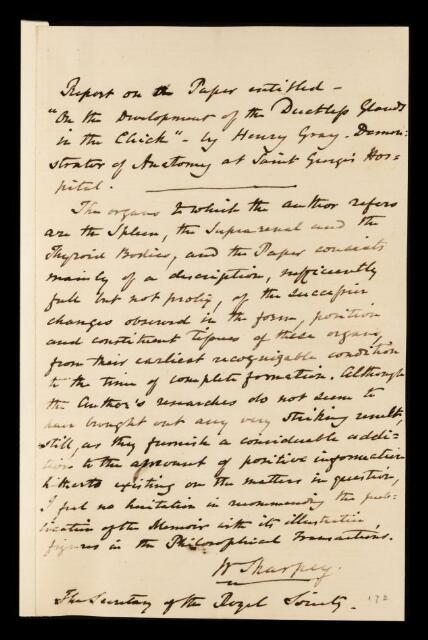 Report on the Paper entitled –
"On the Development of the Ductless Glands
in the Chick" – by Henry Gray – Demon-
strator of Anatomy at Saint George's Hos-
pital.
The organs to which the author refers
are the Spleen, the Suprarenal and the
Thyroid Bodies, and the Paper consists
mainly of a description, sufficiently
full but not prolix, of the successive
changes observed in the form, position
and constituent tissues of these organs,
from their earliest recognizable condition
to the time of complete formation. Although
the Author's researches do not seem to
have brought out any very striking result,
still, as they furnish a considerable addi-
tion to the amount of positive information
hitherto existing on the matters in question,
I feel no hesitation in recommending the pub-
lication of the Memoir with its illustrative
figures in the Philosophical Transactions.
W Sharpey.
The Secretary of the Royal Society.
172